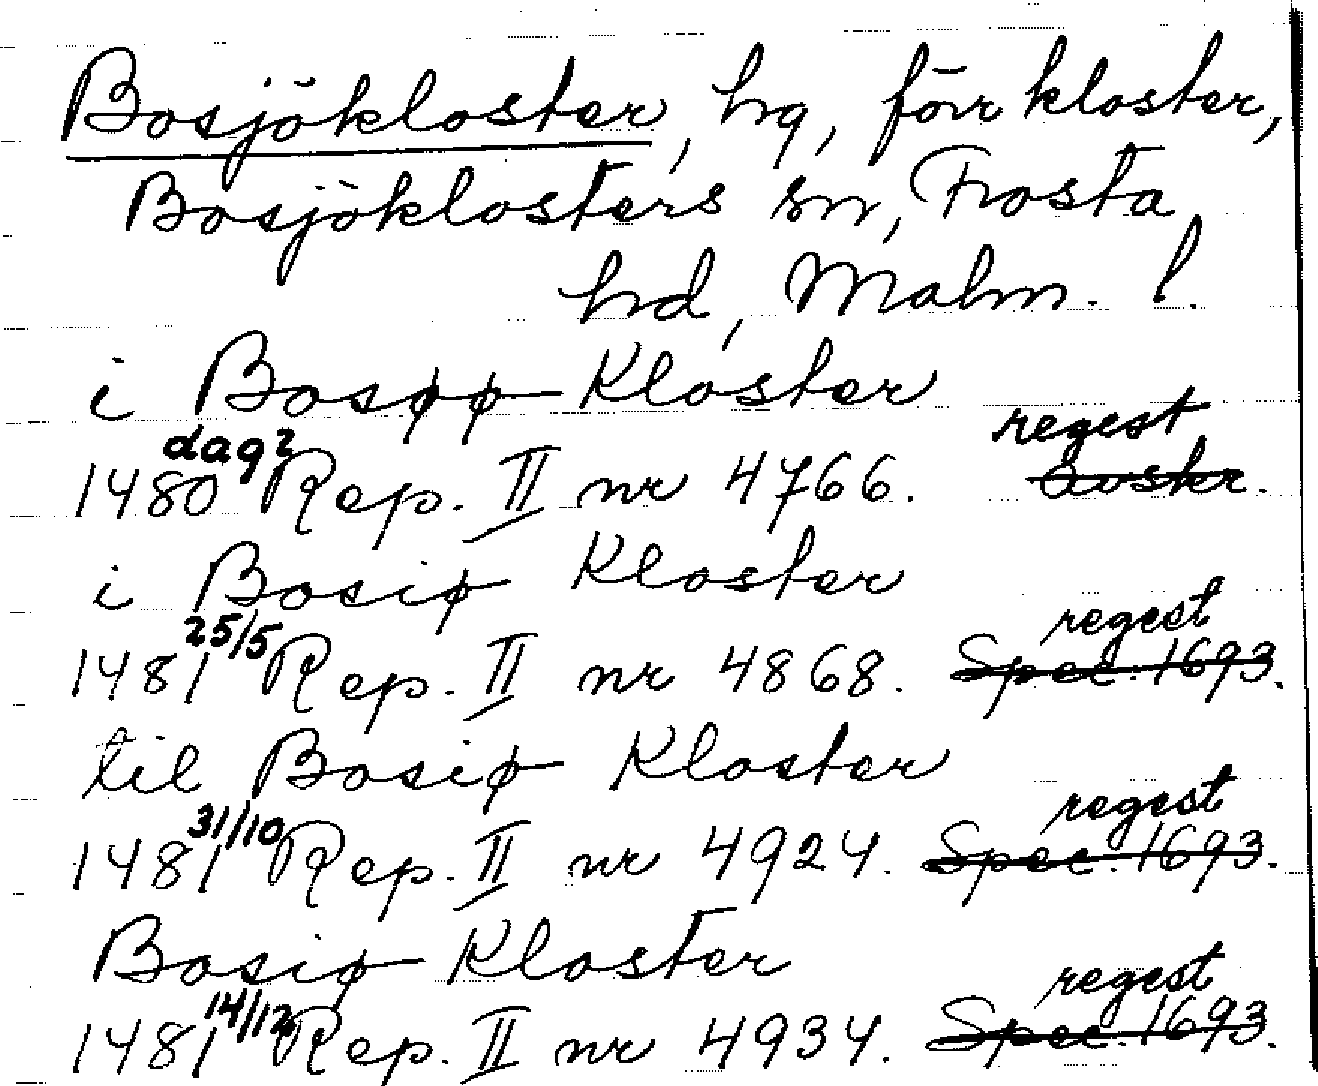 Bosjökloster, hg, förr kloster,
Bosjöklosters sn, Frosta
hd, Malm. l.
i Bosøø Kloster
1480 dag? Rep. II nr 4766. regest avskr.
i Bosiø Kloster
1481 25/5 Rep. II nr 4868. regest Spec. 1693.
til Bosiø Kloster
1481 31/10 Rep. II nr 4924. regest Spec. 1693.
Bosiø Kloster
1481 14/12 Rep. II nr 4934. regest Spec. 1693.